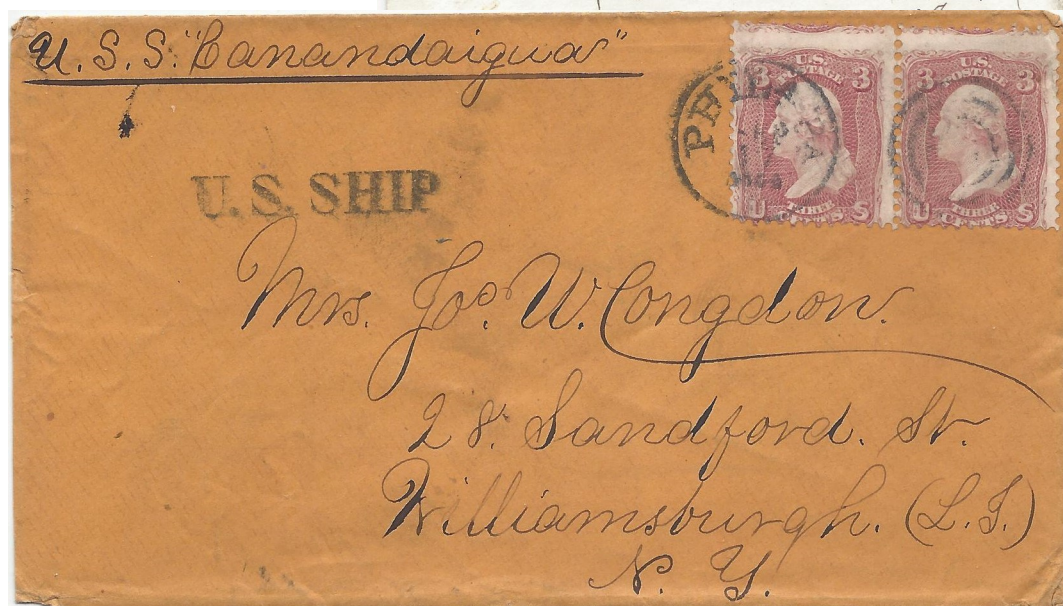 U.S.S. "Canandaigua"
U.S. SHIP
PHILA
3 U.S. POSTAGE 3
U THREE CENTS S
3 U.S. POSTAGE 3
U THREE CENTS S
Mrs. Jos. W. Congdon.
28. Sandford. St.
Williamsburgh. (L.I.)
N. Y.